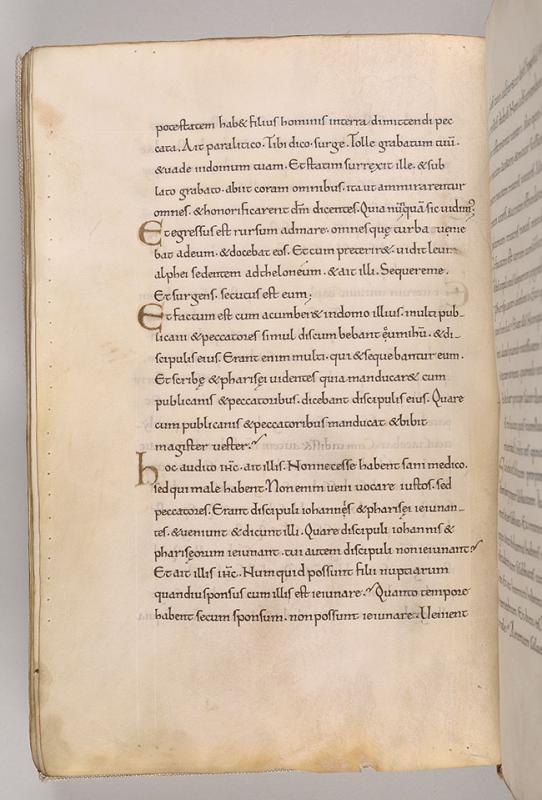 potestatem hab& filius hominis interra dimittendi pec
cata. Ait paralitico. Tibi dico. surge. Tolle grabatum tuū.
&uade indomum tuam. Et statim surrexit ille. & sub
lato grabato. abiit coram omnibus. ita ut ammirarentur
omnes. & honorificarent dm̄ dicentes. Quia nūquā sic uidim;
Et egressus est rursum admare. omnesquę turba uenie
bat adeum. & docebat eos. Et cum preterir& uidit leuin
alphei sedentem adtheloneum. & ait illi. Sequereme.
Et surgens. secutus est eum.
Et factum est cum acumber& indomo illius. multi pub
licani & peccatores simul discum bebant cū ihū. & di
scipulis eius. Erant enim multi. qui & seque bantur eum.
Et scribę & pharisęi uidentes quia manducar& cum
publicanis & peccatoribus. dicebant discipulis eius. Quare
cum publicanis & peccatoribus manducat & bibit
magister uester?
hoc audito ihc̄. ait illis. Non necesse habent sani medico.
sed qui male habent. Non enim ueni uocare iustos. sed
peccatores. Erant discipuli iohannęs & pharisęi ieiunan
tes. & ueniunt & dicunt illi. Quare discipuli iohannis &
pharisęorum ieiunant. tui autem discipuli non ieiunant?
Et ait illis ihc̄. Numquid possunt filii nuptiarum
quandiu sponsus cum illis est ieiunare? Quanto tempore
habent secum sponsum. non possunt ieiunare. Uenient